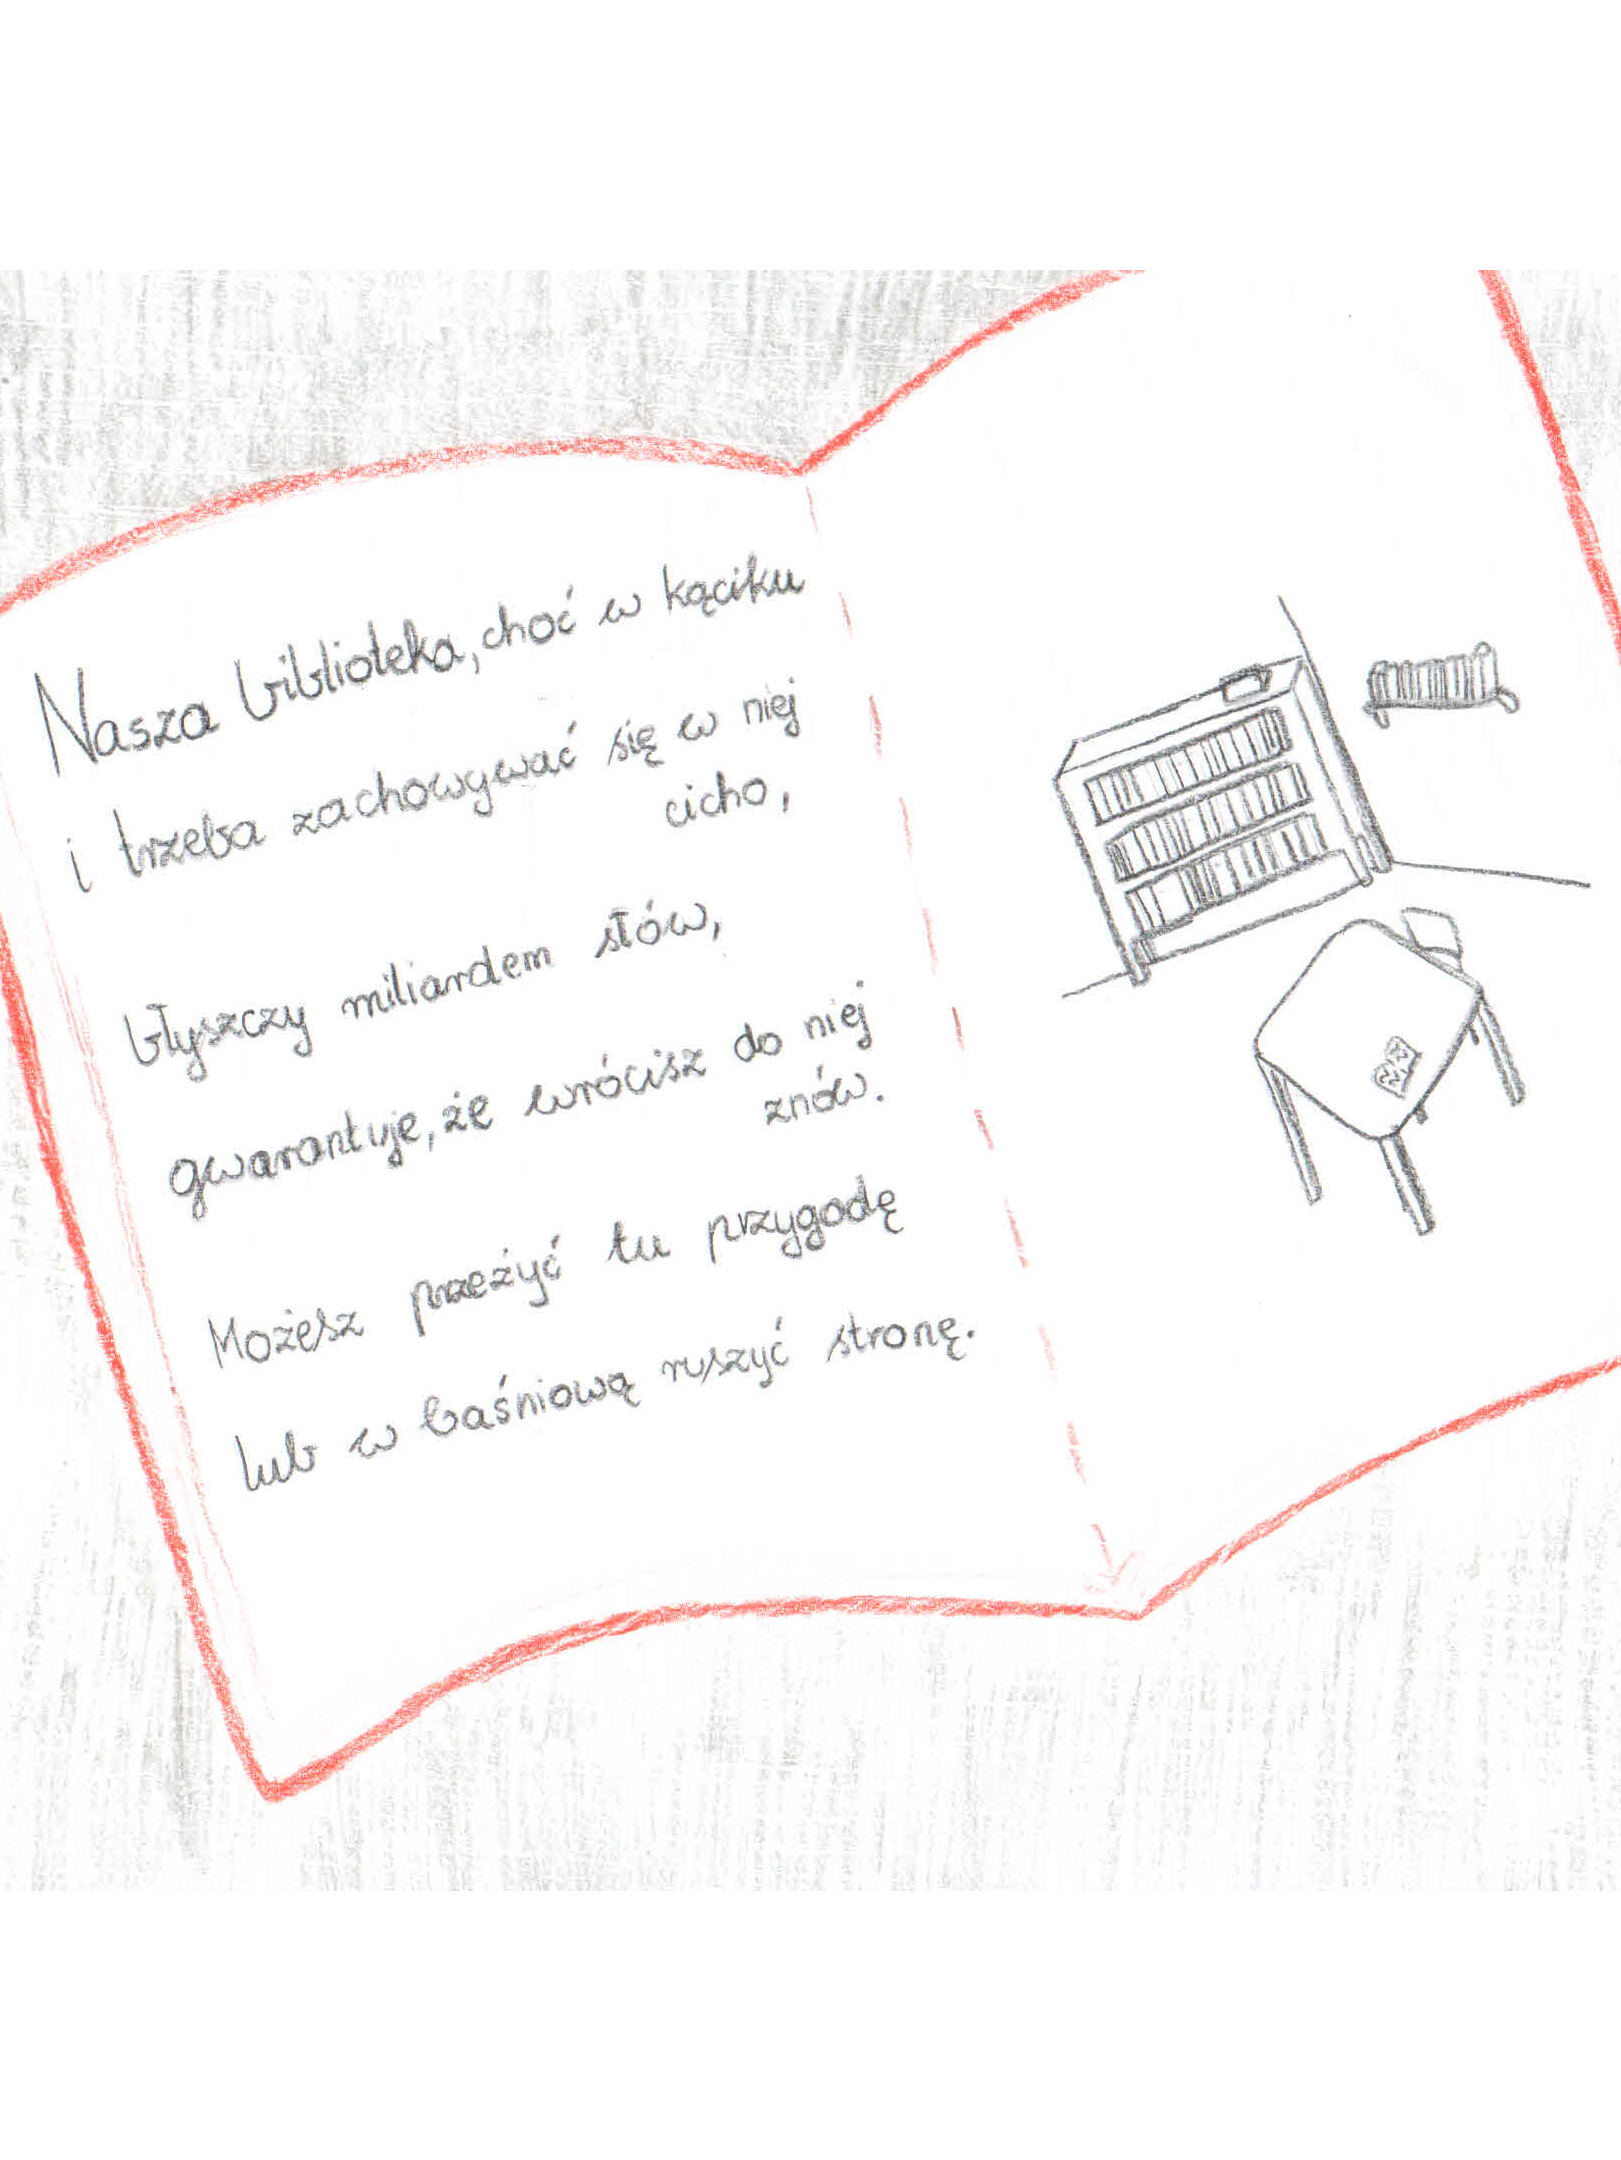 Nasza biblioteka, choć w kąciku
i trzeba zachowywać się w niej
cicho,
błyszczy miliardem słów,
gwarantuje, że wrócisz do niej
znów.
Możesz przeżyć tu przygodę
lub w baśniową ruszyć stronę.